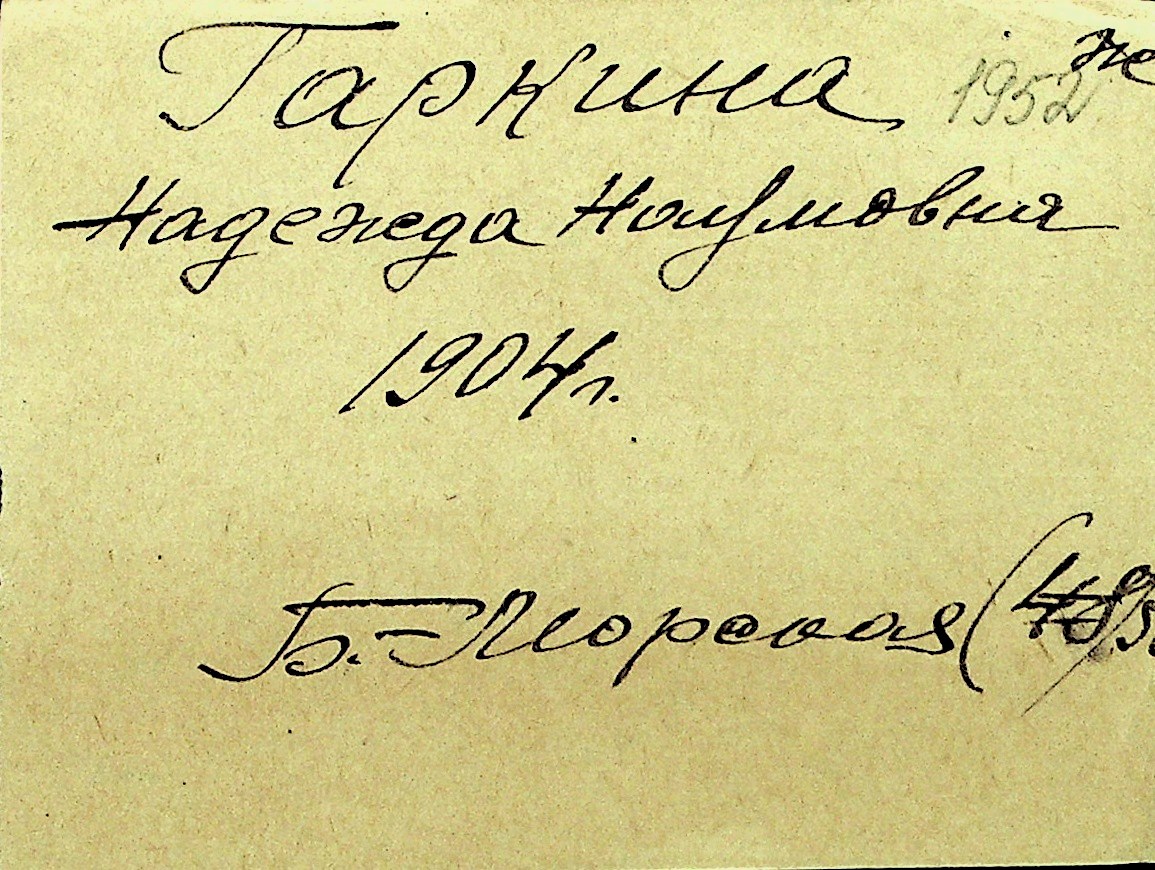 Гаркина 1952
Надежда Наумовна
1904 г.
Б.-Морская